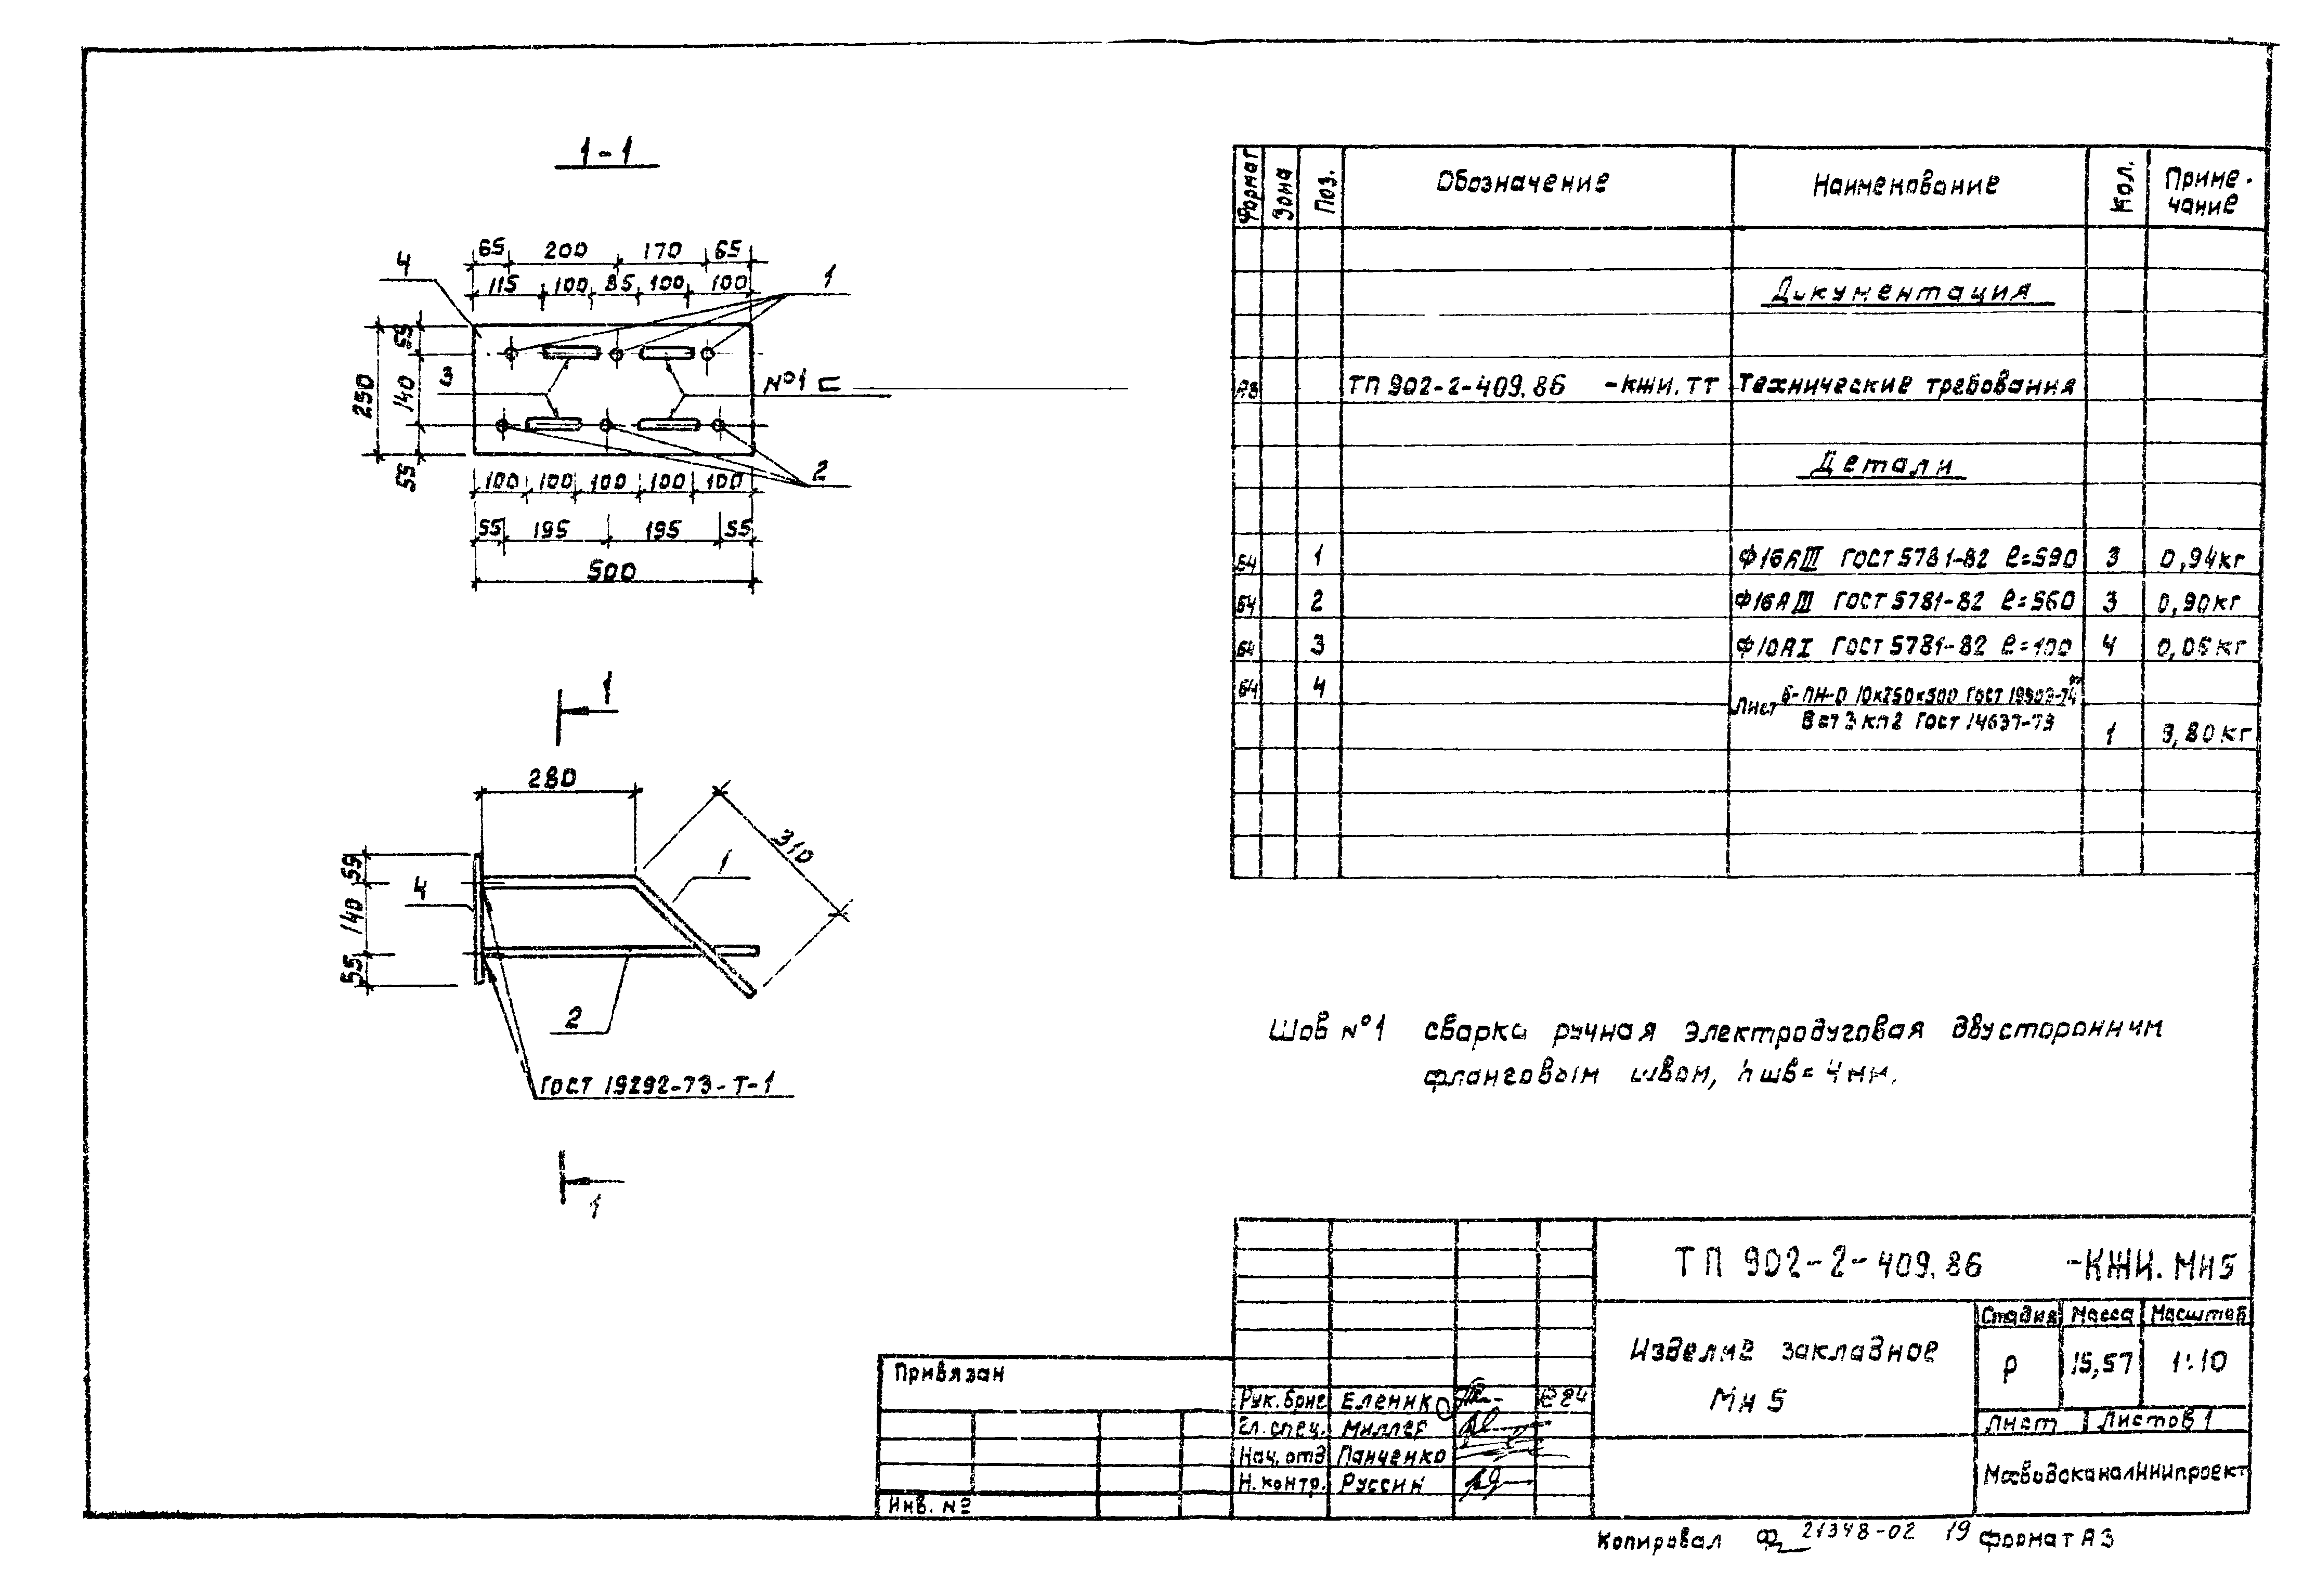 1-1
65 200 170 65
4
115 100 85 100 100
1
55
250
140
3
№1
55
2
100 100 100 100 100
55 195 195 55
500
1
280
310
1
55
4
140
55
2
ГОСТ 19292-73-Т-1
1
Формат Зона Поз. Обозначение Наименование Кол. Приме-
чание
Документация
А3 ТП 902-2-409.86 -КЖИ.ТТ Технические требования
Детали
Б4 1 Ф16АIII ГОСТ 5781-82 ℓ=590 3 0,94кг
Б4 2 Ф16АIII ГОСТ 5781-82 ℓ=560 3 0,90кг
Б4 3 Ф10АI ГОСТ 5781-82 ℓ=100 4 0,06кг
Б4 4 Лист Б-ПН-О 10х250х500 ГОСТ 19903-74
ВСт3кп2 ГОСТ 14637-79 1 9,80кг
Шов №1 сварка ручная электродуговая двусторонним
фланговым швом, hшв=4мм.
ТП 902-2-409.86 -КЖИ.Мн5
Изделие закладное
Мн 5
Стадия Масса Масштаб
Р 15,57 1:10
Лист Листов 1
МосводоканалНИИпроект
Привязан
Инв. №
Рук. бриг Еленико
Гл. спец. Миллер
Нач. отд Панченко
Н. контр. Руссин
Копировал 21348-02 19 Формат А3